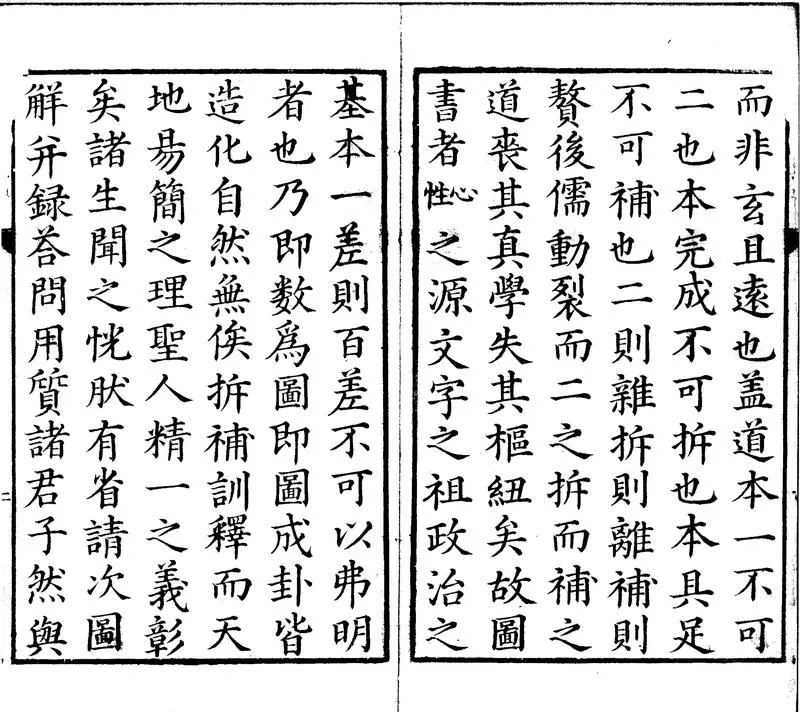 而非玄且遠也盖道本一不可
二也本完成不可拆也本具足
不可補也二則雜拆則離補則
贅後儒動裂而二之拆而補之
道喪其真學失其樞紐矣故圖
書者心性之源文字之祖政治之
基本一差則百差不可以弗明
者也乃即数爲圖即圖成卦皆
造化自然無俟拆補訓釋而天
地易簡之理聖人精一之義彰
矣諸生聞之恍肰有省請次圖
解并録荅問用質諸君子然與